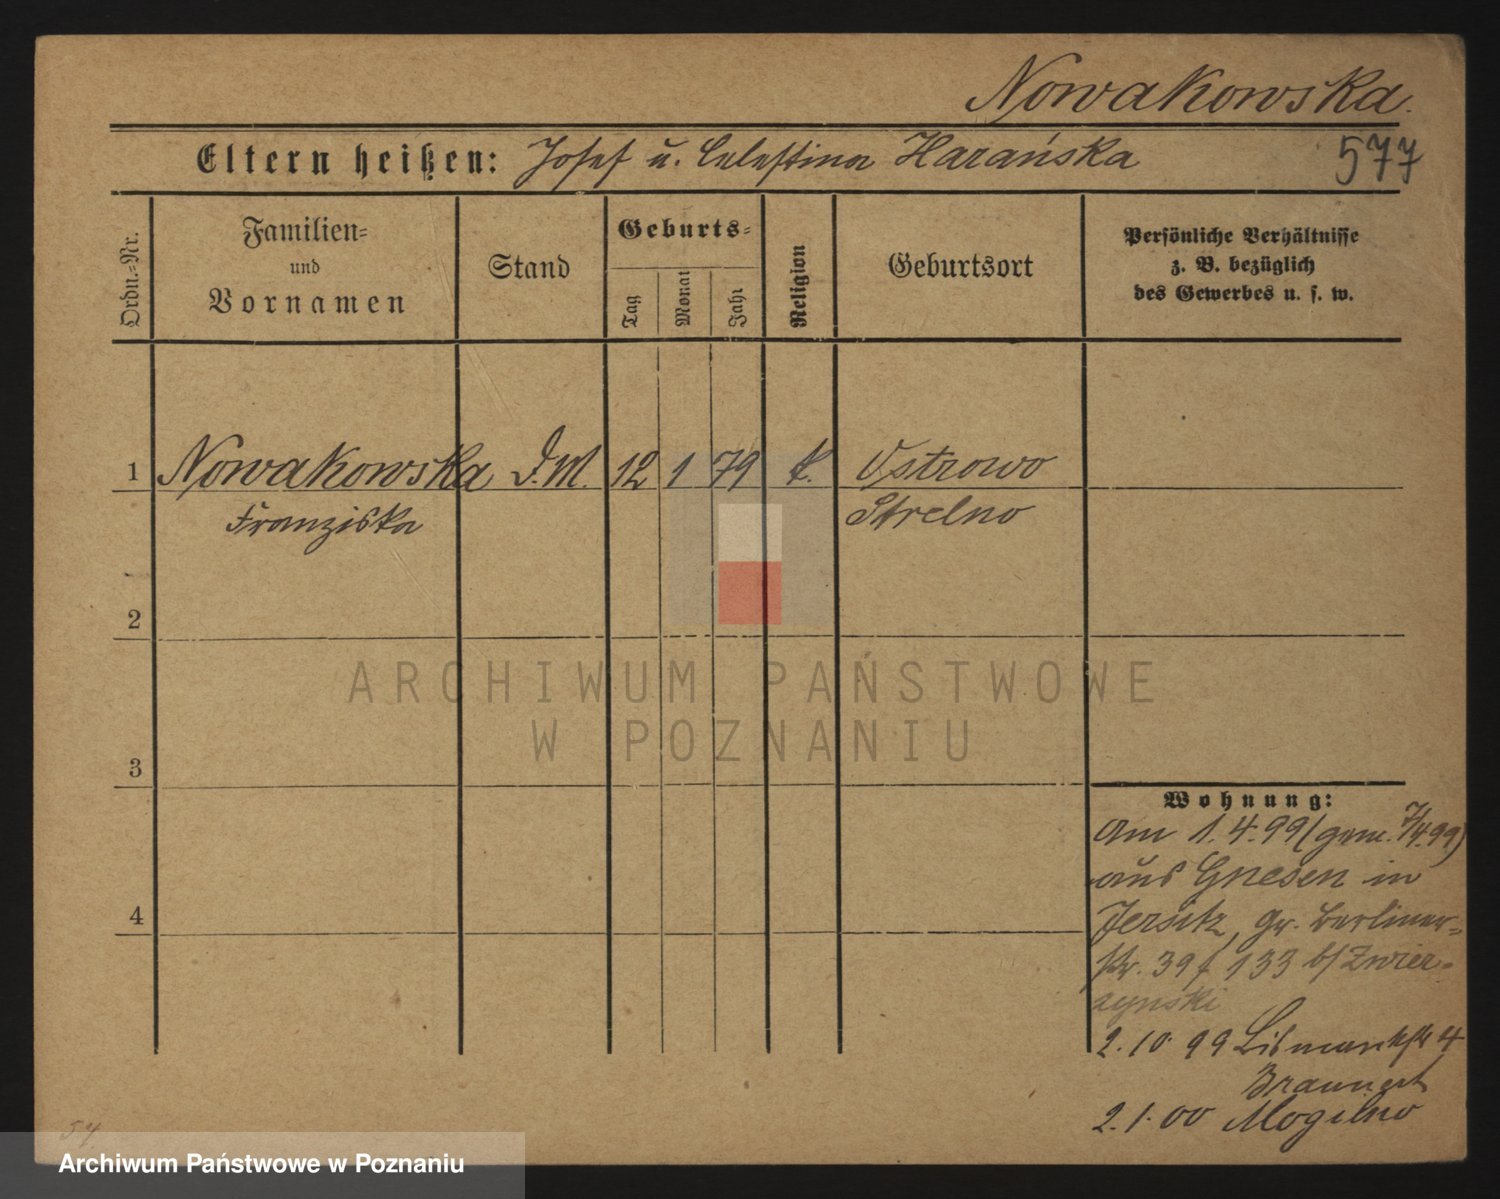 Nowakowska.
Eltern heißen: Josef u. Celestina Harańska 577
Ordn.=Nr.
Familien=
und
Vornamen
Stand
Geburts=
Tag
Monat
Jahr
Religion
Geburtsort
Persönliche Verhältnisse
z. B. bezüglich
des Gewerbes u. s. w.
1 Nowakowska D.M. 12 1 79 k. Ostrowo
Franziska Strelno
2
ARCHIWUM PAŃSTWOWE
W POZNANIU
3
Wohnung:
am 1.4.99 (gem. 7/4.99)
aus Gnesen in
4
Jersitz, Gr. Berliner-
str. 39 f 133 b/Zwier-
zynski
2.10.99 Bismarckstr 4
2.1.00 Mogilno
54
Archiwum Państwowe w Poznaniu